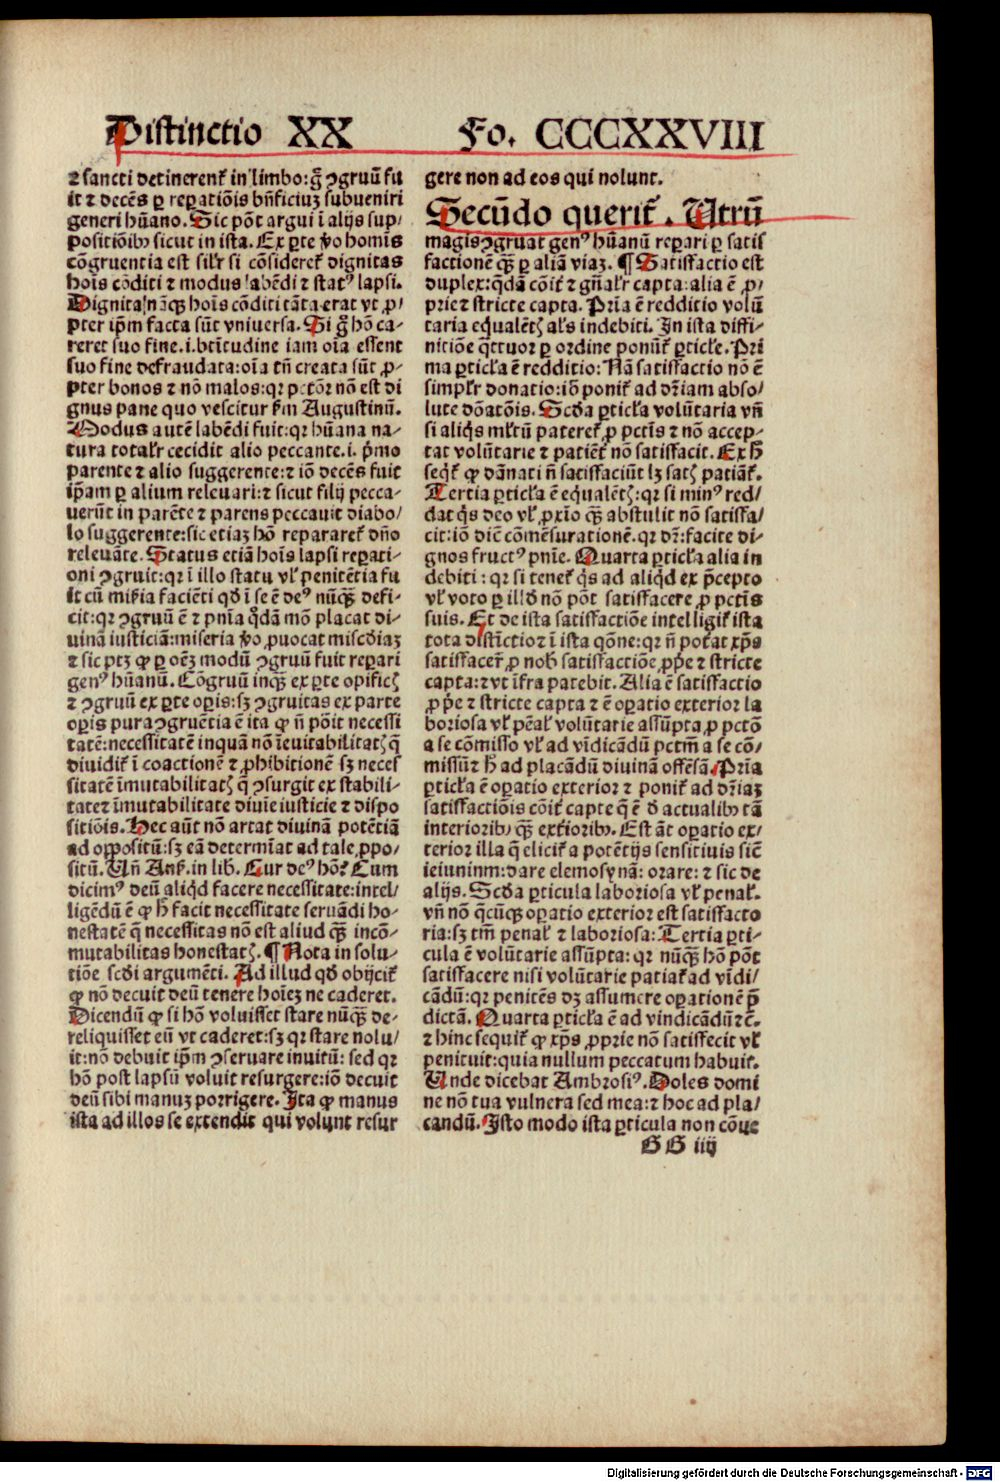 Distinctio XX Fo. CCCXXVIII
⁊ sancti detinerent᷑ in limbo: g̃ ꝯgruũ fu
it ⁊ decẽs ꝑ reꝑatiõis bñficiuȝ subueniri
generi hũano. Sic põt argui ĩ alijs sup/
positiõibꝰ sicut in ista. Ex ꝑte ṽo hominis
cõgruentia est silr̃ si cõsideret᷑ dignitas
hoĩs cõditi ⁊ modus labẽdi ⁊ statꝰ lapsi.
Dignitas nãqꝫ hoĩs cõditi tãta erat vt ꝓ/
pter ip̃m facta sũt vniuersa. Si g̃ hõ ca-
reret suo fine .i. btĩtudine iam oĩa essent
suo fine defraudata: oĩa tñ creata sũt ꝓ-
pter bonos ⁊ nõ malos: qꝛ pctõr nõ est di
gnus pane quo vescitur ẜm Augustinũ.
Modus autẽ labẽdi fuit: qꝛ hũana na-
tura totalr̃ cecidit alio peccante .i. p̃mo
parente ⁊ alio suggerente: ⁊ iõ decẽs fuit
ip̃am ꝑ alium releuari: ⁊ sicut filij pecca-
uerũt in parẽte ⁊ parens peccauit diabo/
lo suggerente: sic etiaȝ hõ repararet᷑ dño
releuãte. Status etiã hoĩs lapsi reꝑati-
oni ꝯgruit: qꝛ ĩ illo statu vl̃ penitẽtia fu
it cũ mĩsia faciẽti qd̃ ĩ se ẽ deꝰ nũqꝫ̃ defi-
cit: qꝛ ꝯgruũ ẽ ⁊ pñia q̃dã mõ placat di-
uinã iusticiã: miseria ṽo ꝓuocat miscd̃iaȝ
⁊ sic ptȝ ꝙ ꝑ oẽȝ modũ ꝯgruũ fuit reꝑari
genꝰ hũanũ. Cõgruũ inqꝫ̃ ex ꝑte opificꝭ
⁊ ꝯgruũ ex ꝑte oꝑis: sȝ ꝯgruitas ex parte
oꝑis pura ꝯgruẽtia ẽ ita ꝙ ñ põit necessi
tatẽ: necessitatẽ inquã nõ ĩeuitabilitatꝭ q̃
diuidit᷑ ĩ coactionẽ ⁊ ꝓhibitionẽ sȝ neces
sitatẽ ĩmutabilitatꝭ q̃ ꝯsurgit ex stabili-
tate ⁊ ĩmutabilitate diuie iusticie ⁊ dispo
sitiõis. Hec aũt nõ artat diuinã potẽtiã
ad oppositũ: sȝ eã determĩat ad tale ꝓpo-
sitũ. Uñ Anẜ. in lib. Cur deꝰ hõ? Cum
dicimꝰ deũ aliqd̃ facere necessitate: intel/
ligẽdũ ẽ ꝙ h̃ facit necessitate seruãdi ho-
nestatẽ q̃ necessitas nõ est aliud qꝫ̃ incõ-
mutabilitas honestatꝭ. ¶ Nota in solu-
tiõe scd̃i argumẽti. Ad illud qd̃ obijcit᷑
ꝙ nõ decuit deũ tenere hoĩeȝ ne caderet.
Dicendũ ꝙ si hõ voluisset stare nũqꝫ̃ de-
reliquisset eũ vt caderet: sȝ qꝛ stare nolu/
it: nõ debuit ip̃m ꝯseruare inuitũ: sed qꝛ
hõ post lapsũ voluit resurgere: iõ decuit
deũ sibi manuȝ porrigere. Ita ꝙ manus
ista ad illos se extendit qui volunt resur
gere non ad eos qui nolunt.
Secũdo querit᷑. Utrũ
magis ꝯgruat genꝰ hũanũ reꝑari ꝑ satis
factionẽ qꝫ̃ ꝑ aliã viaȝ. ¶ Satisfactio est
duplex: q̃dã cõit᷑ ⁊ gñalr̃ capta: alia ẽ ꝓ/
prie ⁊ stricte capta. Prĩa ẽ redditio volũ
taria equalẽtꝭ als̃ indebiti. In ista diffi-
nitiõe q̃ttuor ꝑ ordine ponũt᷑ ꝑticl̃e. Pri
ma ꝑticl̃a ẽ redditio: Nã satisfactio nõ ẽ
simplr̃ donatio: iõ ponit᷑ ad dr̃iam abso/
lute dõatõis. Scd̃a ꝑticl̃a volũtaria vñ
si aliq̃s ml̃tũ pateret᷑ ꝓ pctĩs ⁊ nõ accep-
tat volũtarie ⁊ patiẽt᷑ nõ satisfacit. Ex h̃
seqt᷑ ꝙ dãnati ñ satisfaciũt lȝ satꝭ patiãt᷑.
Tertia ꝑticl̃a ẽ equalẽtꝭ: qꝛ si minꝰ red/
dat q̃s deo vl̃ ꝓxĩo qꝫ̃ abstulit nõ satisfa/
cit: iõ diẽ cõmẽsurationẽ. qꝛ dr̃: facite di-
gnos fructꝰ pñie. Quarta ꝑticl̃a alia in
debiti: qꝛ si tenet᷑ q̃s ad aliqd̃ ex p̃cepto
vl̃ voto ꝑ illd̃ nõ põt satisfacere ꝓ pctĩs
suis. Et de ista satisfactiõe intelligit᷑ ista
tota distĩctio ⁊ ĩ ista qõne: qꝛ ñ poẗat xp̃s
satisfacer̃ ꝓ nob̃ satisfactiõe ꝓp̃e ⁊ stricte
capta: ⁊ vt ĩfra patebit. Alia ẽ satisfactio
ꝓp̃e ⁊ stricte capta ⁊ ẽ oꝑatio exterior la
boriosa vl̃ peñal̃ volũtarie assũpta ꝓ pctõ
a se cõmisso vl̃ ad vĩdicãdũ pctm̃ a se cõ/
missũ ⁊ h̃ ad placãdũ diuinã offẽsã. Prĩa
ꝑticl̃a ẽ oꝑatio exterior ⁊ ponit᷑ ad dr̃iaȝ
satisfactiõis cõit᷑ capte q̃ ẽ d̃ actualibꝰ tã
interioribꝰ qꝫ̃ exẗioribꝰ. Est ãt oꝑatio ex/
terior illa q̃ elicit᷑ a potẽtijs sensitiuis sic̃
ieiuninm: dare elemosynã: orare: ⁊ sic de
alijs. Scd̃a ꝑticula laboriosa vl̃ penal̃.
vñ nõ q̃cũqꝫ oꝑatio exterior est satisfacto
ria: sȝ tm̃ penal̃ ⁊ laboriosa: Tertia ꝑti-
cula ẽ volũtarie assũpta: qꝛ nũqꝫ̃ hõ põt
satisfacere nisi volũtarie patiat᷑ ad vĩdi/
cãdũ: qꝛ penitẽs dȝ assumere oꝑationẽ p̃
dictã. Quarta ꝑticl̃a ẽ ad vindicãdũ ⁊c̃.
⁊ hinc sequit᷑ ꝙ xp̃s ꝓprie nõ satisfecit vl̃
penituit: quia nullum peccatum habuit.
Unde dicebat Ambrosiꝰ. Doles domi
ne nõn tua vulnera sed mea: ⁊ hoc ad pla/
candũ. Isto modo ista ꝑticula non cõue
GG iiij
Digitalisierung gefördert durch die Deutsche Forschungsgemeinschaft - DFG